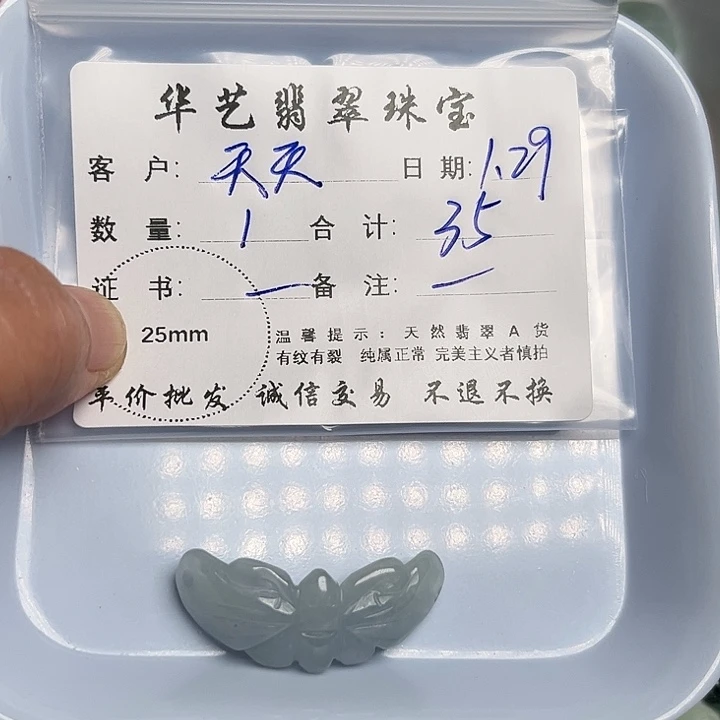 华艺翡翠珠宝
客 户: 天天 日 期: 1.29
数 量: 1 合 计: 35
证 书: — 备 注: —
25mm
温馨提示: 天然翡翠A货
有纹有裂 纯属正常 完美主义者慎拍
平价批发 诚信交易 不退不换